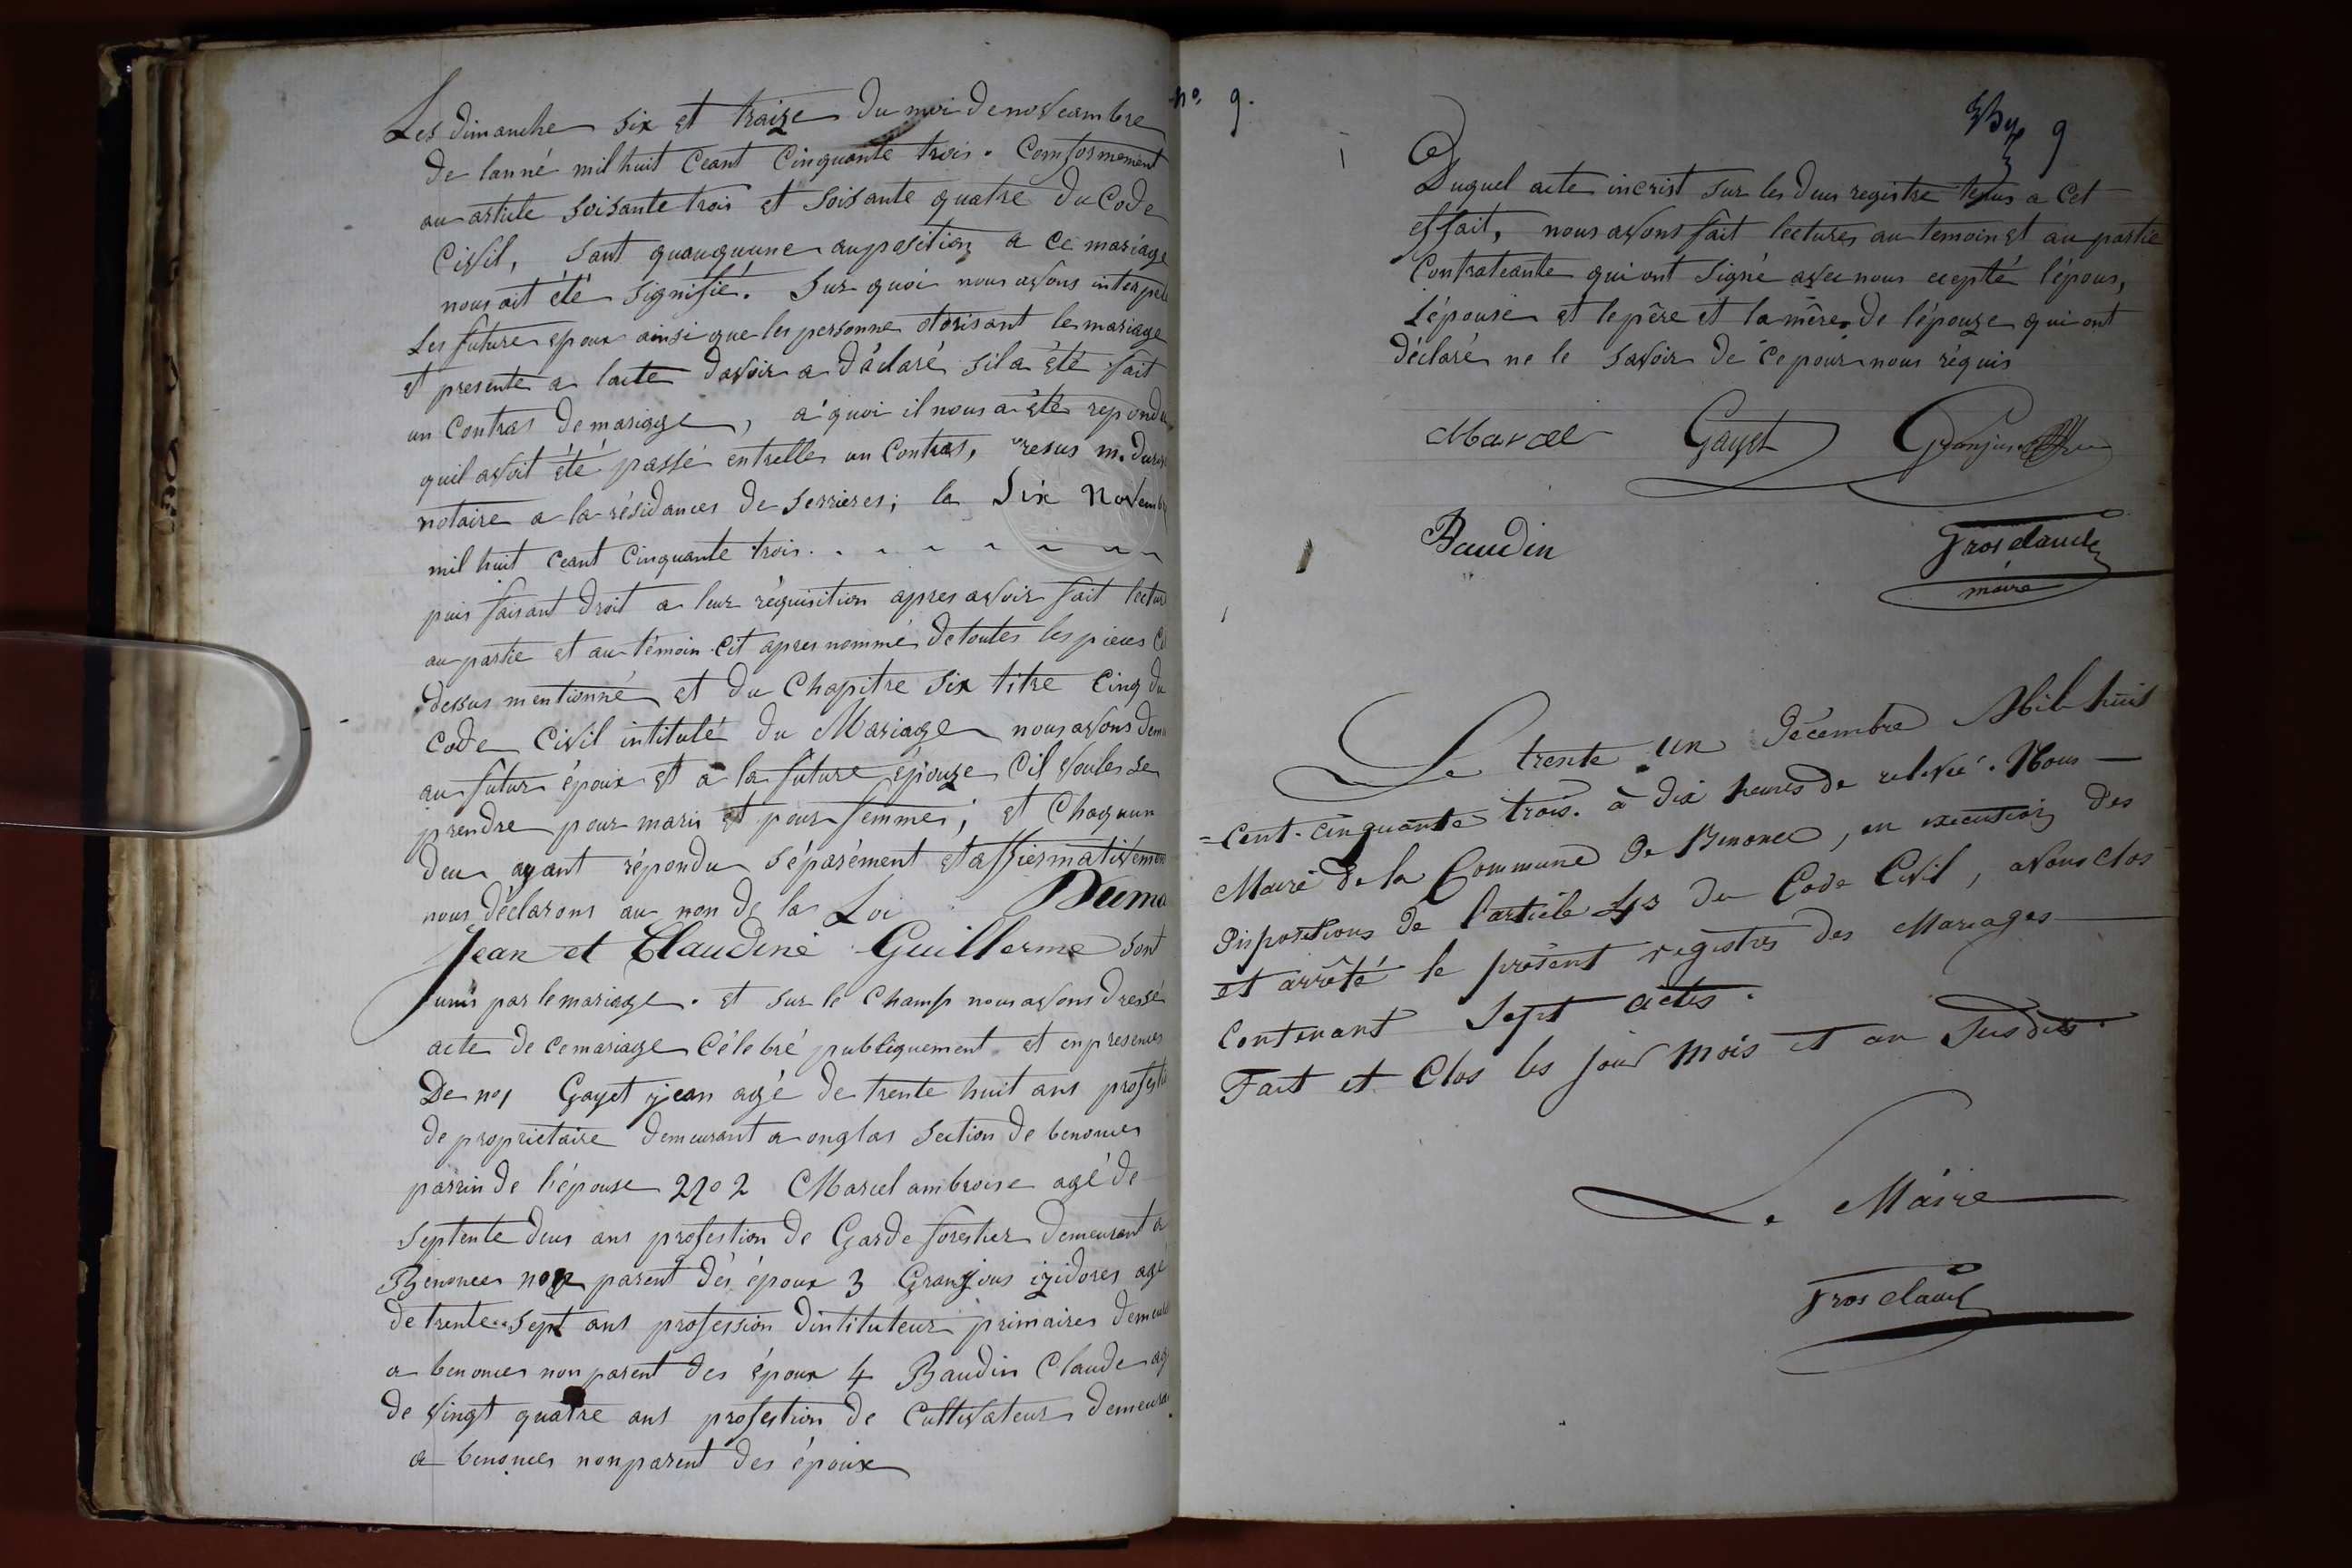 Les dimanche six et traize du moi de noveambre
de lanné mil huit ceant cinquante trois. comformement
au article soisante trois et soisante quatre du code
civil, sant quauquune auposition a ce mariage
nous ait été signifié. Sur quoi nous avons interpelé
Les future epoux ainsi que les personne otorisant le mariage
et presente a lacte davoir a déclaré sil a été fait
un contras de mariage, a quoi il nous a été repondu
quil avoit été passé entrelles un contras, resus m.
notaire a la résidances de serrieres; le Six Novembre
mil huit ceant cinquante trois.
puis faisant droit a leur réquisition apres avoir fait lectur
au partie et au témoin cit apres nommé de toutes les pieces
dessus mentionné et du chapitre six titre cinq du
code civil intitulé du Mariage nous avons dem
au futur époux et a la future épouze cil voules se
prendre pour maris et pour femme; et chaquun
deu ayant répondu séparément et affiermativement
nous déclarons au non de la Loi Duma
Jean et Claudine Guillerme sont
unis par le mariage. et sur le champ nous avons dressé
acte de ce mariage célebré publiquement et en presences
De no1 Gayet jean agé de trente huit ans profestio
de proprietaire demeurant a onglas section de benonces
parrin de l'épouse 2 Marcel ambroise agé de
septente deus ans profestion de Garde forestier demeurant a
Benonces non parent dés époux 3 Granjous izidores agé
de trente sept ans profession dintituteur primaires demeura
a benonces non parent des époux 4 Baudin Claude ag
de vingt quatre ans profestion de cultivateur demeura
a benonces non parent des époux
no. 9.
9
Duquel acte incrist sur les deus registre tenus a cet
effait, nous avons fait lectures au temoin et au partie
contrateante qui ont signé avec nous ecepté l'épous,
l'épouse et le père et la mère de l'épouze qui ont
déclaré ne le savoir de ce pour nous réquis
Marcel Gayet Granjus
Baudin Grosclaude
maire
Le trente un Décembre Mil huit
=cent-cinquante trois. à dix heures de relevée. Nous
Maire de la Commune de Benonce, en execution des
dispositions de l'article 43 du Code Civil, avons clos
et arrêté le présent registres des Mariages
contenant Sept actes.
Fait et Clos les jour mois et an susdits.
Le Maire
Grosclaude